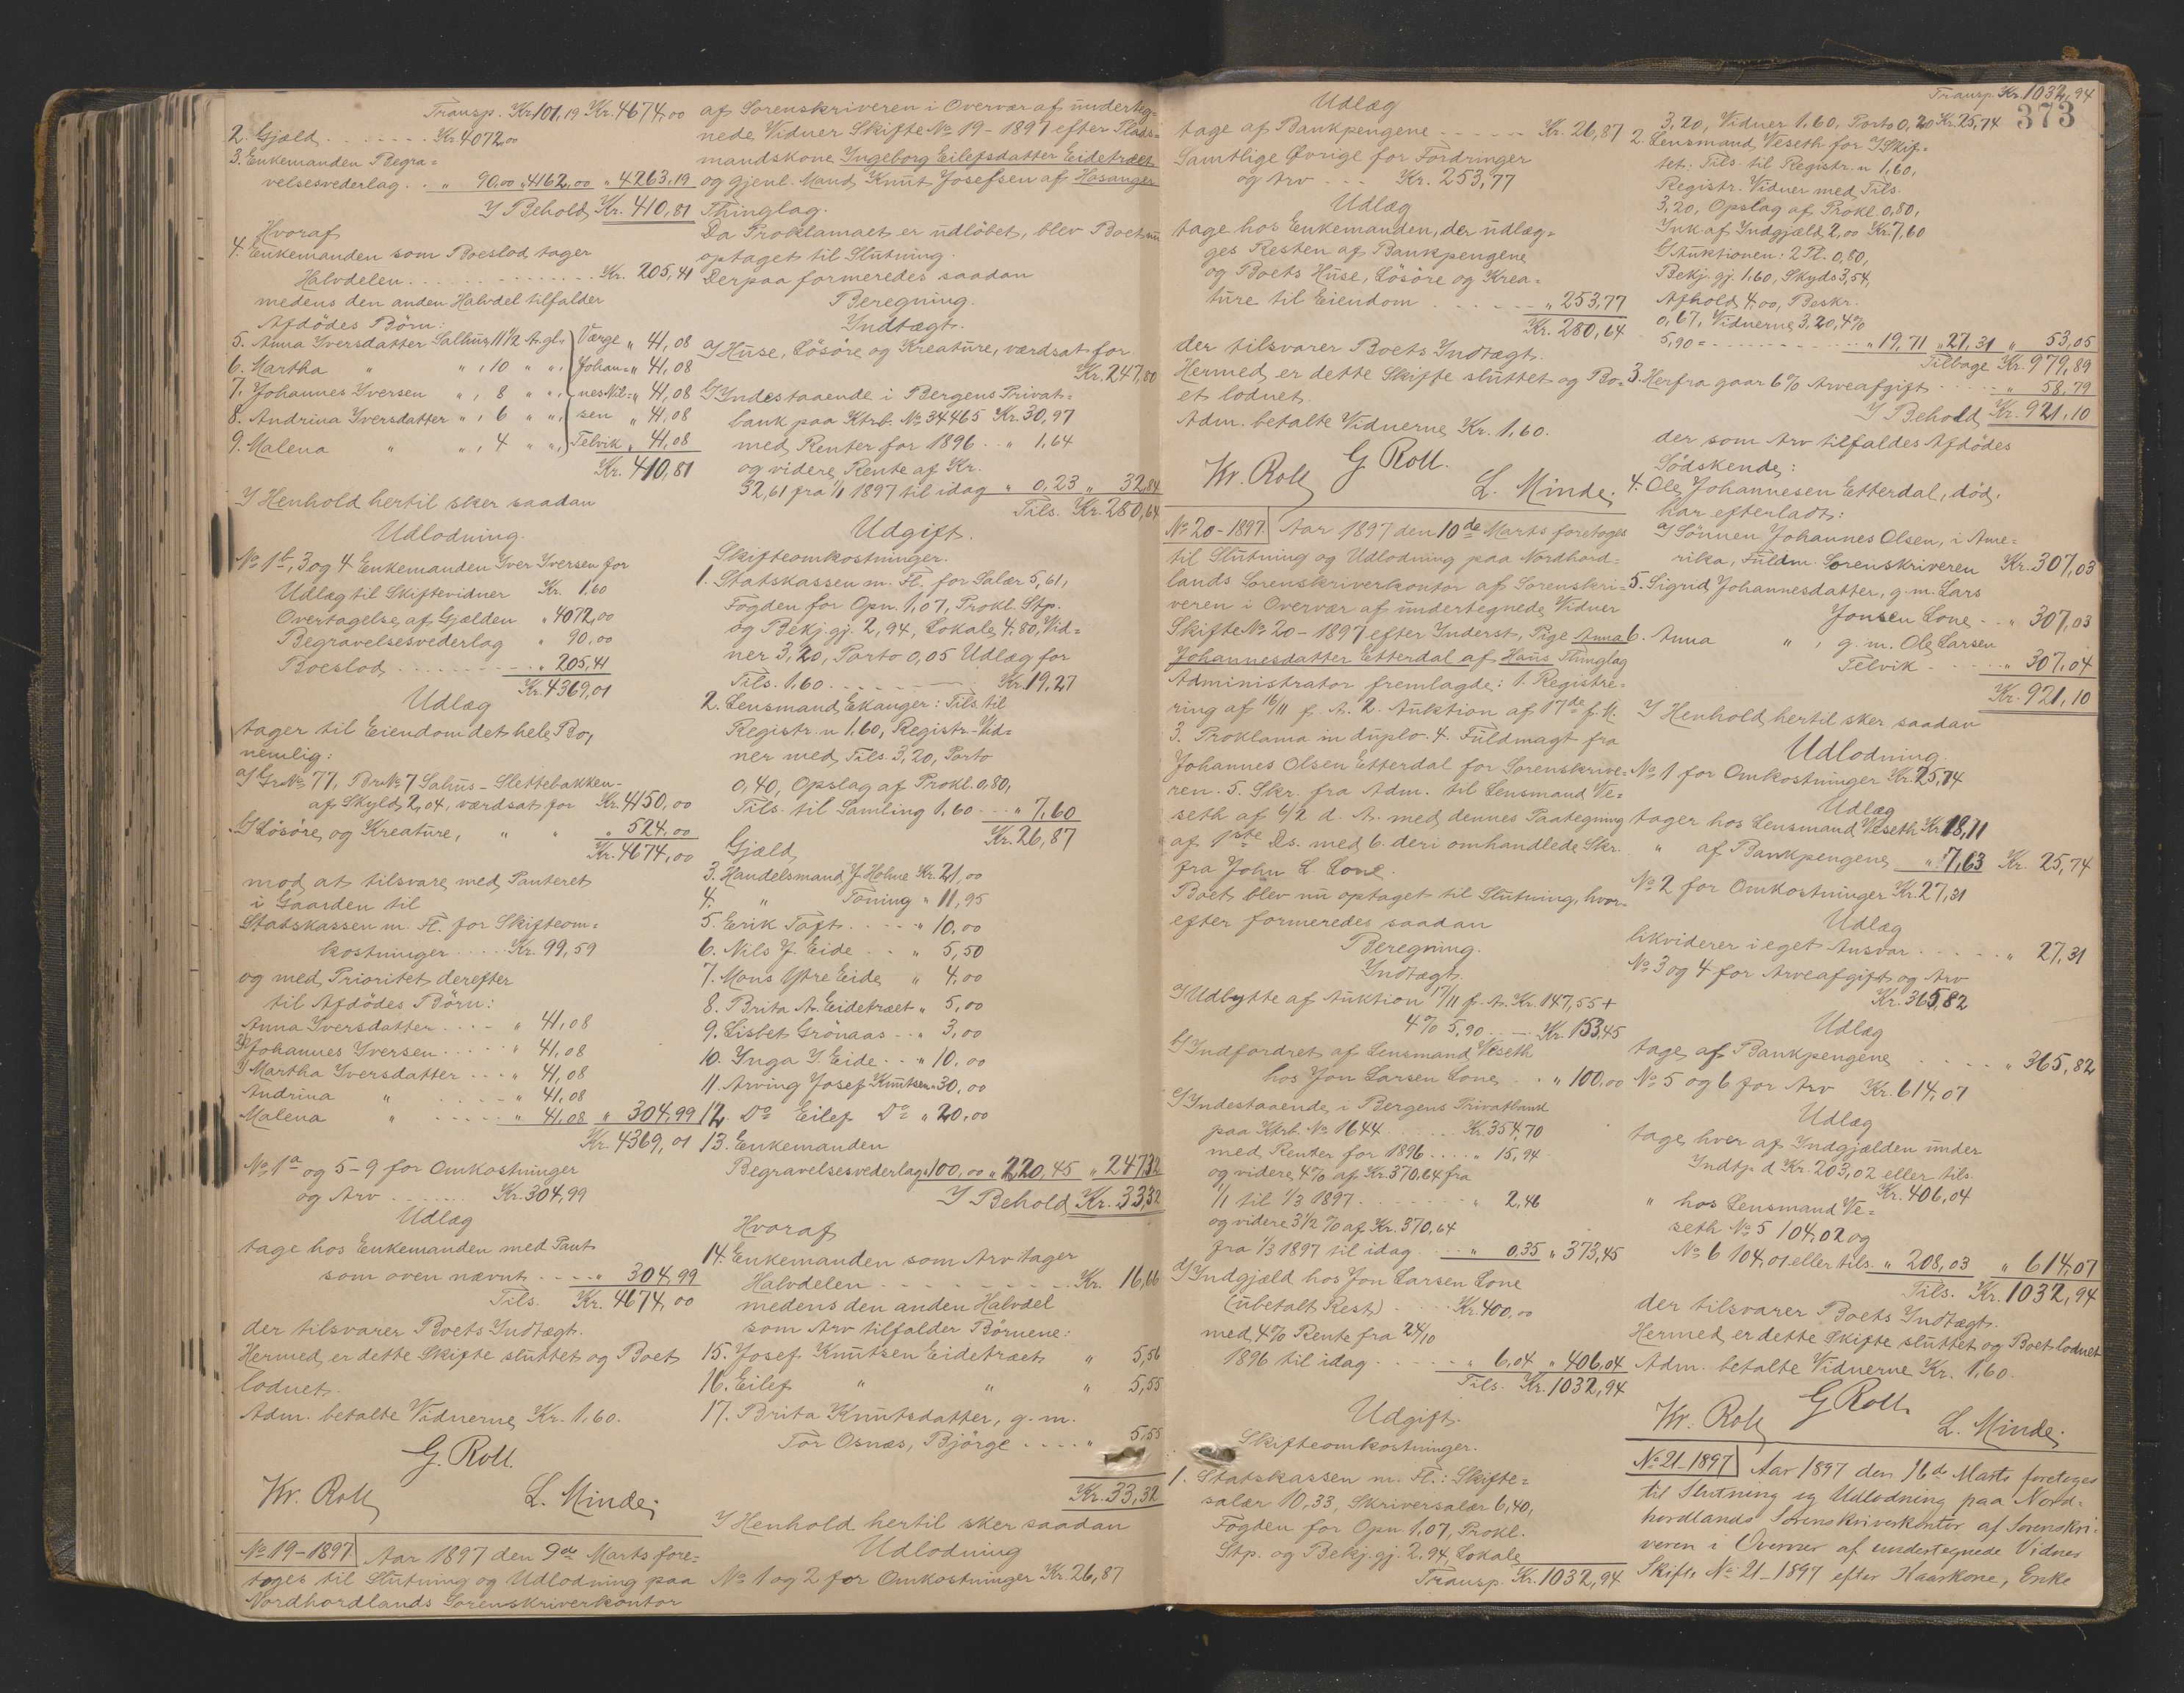 Transp. Kr. 101,19 Kr. 4674,00
2. Gjæld . . . . . . . Kr. 4072,00
3. Enkemanden Begra=
velsesvederlag . . " 90,00 " 4162,00 " 4263,19
I Behold Kr. 410,81
Hvoraf
4. Enkemanden som Boeslod tager
Halvdelen . . . . . . . . Kr. 205,41
medens den anden Halvdel tilfalder
Afdödes Börn:
5. Anna Iversdatter Salhus, 11 1/2 A. gl., Værge " 41,08
6. Martha " " , 10 " " , Johan= " 41,08
7. Johannes Iversen " , 8 " " , nes Nil= " 41,08
8. Andrina Iversdatter " , 6 " " , sen " 41,08
9. Malena " " , 4 " " , Telvik " 41,08
Kr. 410,81
I Henhold hertil sker saadan
Udlodning.
No 1b, 3 og 4 Enkemanden Iver Iversen for
Udlæg til Skiftevidner Kr. 1,60
Overtagelse af Gjælden " 4072,00
Begravelsesvederlag " 90,00
Boeslod . . . . . . . . " 205,41
Kr. 4369,01
Udlæg
tager til Eiendom det hele Bo,
nemlig:
a) Gr No 77, Br No 7 Salhus - Slettebakken -
af Skyld 2,04, værdsat for Kr. 4150,00
b) Lösöre og Kreature, " " " 524,00
Kr. 4674,00
mod at tilsvare med Panteret
i Gaarden til
Statskassen m. Fl. for Skifteom=
kostninger . . . . Kr. 99,59
og med Prioritet derefter
til Afdödes Börn:
Anna Iversdatter . . . - " 41,08
Johannes Iversen . . . . . " 41,08
Martha Iversdatter . . . " 41,08
Andrina " . . . . . " 41,08
Malena " . . . . . " 41,08 " 304,99
Kr. 4369,01
No 1a og 5-9 for Omkostninger
og Arv . . . . . . . Kr. 304,99
Udlæg
tage hos Enkemanden med Pant
som oven nævnt . . . . " 304,99
Tils. Kr. 4674,00
der tilsvarer Boets Indtægt.
Hermed er dette Skifte sluttet og Boet
lodnet.
Adm. betalte Vidnerne Kr. 1,60.
G. Roll.
Kr. Roll L. Minde.
No 19-1897 Aar 1897 den 9de Marts fore=
toges til Slutning og Udlodning paa
Nordhordlands Sorenskriverkontor
af Sorenskriveren i Overvær af underteg=
nede Vidner Skifte No 19 - 1897 efter Plads=
mandskone Ingeborg Eilefsdatter Eidetræet
og gjenl. Mand Knut Josefsen af Hosanger
Thinglag.
Da Proklamaet er udlöbet, blev Boet nu
optaget til Slutning.
Derpaa formeredes saadan
Beregning.
Indtægt.
a) Huse, Lösöre og Kreature, værdsat for
Kr. 247,80
b) Indestaaende i Bergens Privat=
bank paa Ktrb. No 34465 Kr. 30,97
med Renter for 1896 . . " 1,64
og videre Rente af Kr.
32,61 fra 1/1 1897 til idag " 0,23 " 32,84
Tils. Kr. 280,64
Udgift.
Skifteomkostninger.
1. Statskassen m. Fl. for Salær 5,61,
Fogden for Opn. 1,07, Prokl. Stp.
og Bekj. gj. 2,94, Lokale 4,80, Vid=
ner 3,20, Porto 0,05 Udlæg for
Tils. 1,60 . . . . . . . . Kr. 19,27
2. Lensmand Ekanger: Tils. til
Registr. n 1,60, Registr. Vid=
ner med Tils. 3,20, Porto
0,40, Opslag af Prokl. 0,80,
Tils. til Samling 1,60 . . . " 7,60
Kr. 26,87
Gjæld
3. Handelsmand J. Holme Kr. 21,00
4. " Töning " 11,95
5. Erik Toft . . . . . " 10,00
6. Nils J. Eide . . . " 5,50
7. Mons Ytre Eide " 4,00
8. Brita A. Eidetræet " 5,00
9. Lisbet Grönaas . . " 3,00
10. Inga I. Eide . . . " 10,00
11. Arving Josef Knutsen " 30,00
12. Do Eilef Do " 20,00
13. Enkemanden
Begravelsesvederlag " 100,00 " 220,45 " 247,32
I Behold Kr. 33,32
Hvoraf
14. Enkemanden som Arv tager
Halvdelen . . . . . . . . . Kr. 16,66
medens den anden Halvdel
som Arv tilfalder Börnene:
15. Josef Knutsen Eidetræet " 5,56
16. Eilef " " " 5,55
17. Brita Knutsdatter, g. m.
Tor Osnæs, Björge . . . . " 5,55
Kr. 33,32
I Henhold hertil sker saadan
Udlodning
No 1 og 2 for Omkostninger Kr. 26,87
Udlæg
tage af Bankpengene . . . . . . Kr. 26,87
Samtlige Övrige for Fordringer
og Arv . . . Kr. 253,77
Udlæg
tage hos Enkemanden, der udlæg=
ges Resten af Bankpengene
og Boets Huse, Lösöre og Krea=
ture til Eiendom . . . . . . " 253,77
Kr. 280,64
der tilsvarer Boets Indtægt.
Hermed er dette Skifte sluttet og Bo=
et lodnet.
Adm. betalte Vidnerne Kr. 1,60.
G Roll.
Kr. Roll L. Minde.
No 20-1897. Aar 1897 den 10de Marts foretoges
til Slutning og Udlodning paa Nordhord=
lands Sorenskriverkontor af Sorenskri=
veren i Overvær af undertegnede Vidner
Skifte No 20 - 1897 efter Inderst, Pige Anna
Johannesdatter Etterdal af Haus Thinglag
Administrator fremlagde: 1. Registre=
ring af 16/11 f. A. 2. Auktion af 17de f. M.
3. Proklama in duplo. 4. Fuldmagt fra
Johannes Olsen Etterdal for Sorenskrive=
ren. 5. Skr. fra Adm. til Lensmand Ve=
seth af 6/2 d. A. med dennes Paategning
af 1ste Ds. med 6. deri omhandlede Skr.
fra John L Lone.
Boet blev nu optaget til Slutning, hvor=
efter formeredes saadan
Beregning.
Indtægt.
a) Udbytte af Auktion 17/11 f. A. Kr. 147,55 +
4% 5,90 . . . . Kr. 153,45
b) Indfordret af Lensmand Veseth
hos Jon Larsen Lone . . " 100,00
c) Indestaaende i Bergens Privatbank
paa Ktrb. No 1644 . . . . . Kr. 354,70
med Renter for 1896 . . . . " 15,94
og videre 4% af Kr. 370,64 fra
1/1 til 1/3 1897 . . . . . . . " 2,46
og videre 3 1/2 % af Kr. 370,64
fra 1/3 1897 til idag . . . . " 0,35 " 373,45
d) Indgjæld hos Jon Larsen Lone
(ubetalt Rest) . . . . Kr. 400,00
med 4% Rente fra 24/10
1896 til idag . . . . . . " 6,04 " 406,04
Tils. Kr. 1032,94
Udgift.
Skifteomkostninger.
1. Statskassen m. Fl.: Skifte=
salær 10,33, Skriversalær 6,40,
Fogden for Opn 1,07, Prokl.
Stp. og Bekj. gj. 2,94, Lokale
Transp. Kr. 1032,94
Transp. Kr. 1032,94
373
3,20, Vidner 1,60, Porto 0,20 Kr. 25,74
2. Lensmand Veseth for Skif=
tet: Tils. til Registr. n 1,60,
Registr. Vidner med Tils.
3,20, Opslag af Prokl. 0,80,
Ink. af Indgjæld 2,00 Kr. 7,60
Auktionen: 2 Pl. 0,80,
Bekj. gj. 1,60, Skyds 3,54,
Afhold 4,00, Beskr.
0,67, Vidnerne 3,20, 4%
5,90 = . . . . . . . . " 19,71 " 27,31 " 53,05
Tilbage Kr. 979,89
3. Herfra gaar 6% Arveafgift . . . . " 58,79
I Behold Kr. 921,10
der som Arv tilfaldes Afdödes
Södskende:
4. Ole Johannesen Etterdal, död,
har efterladt:
a) Sönnen Johannes Olsen, i Ame=
rika, Fuldm. Sorenskriveren Kr. 307,03
5. Sigrid Johannesdatter, g. m. Lars
Jonsen Lone . . . " 307,03
6. Anna " , g. m. Ole Larsen
Telvik . . . . . . " 307,04
Kr. 921,10
I Henhold hertil sker saadan
Udlodning.
No 1 for Omkostninger Kr. 25,74
Udlæg
tager hos Lensmand Veseth Kr 18,11
" af Bankpengene " 7,63 Kr. 25,74
No 2 for Omkostninger Kr. 27,31
Udlæg
likviderer i eget Ansvar . . . . . " 27,31
No 3 og 4 for Arveafgift og Arv
Kr. 365,82
Udlæg
tage af Bankpengene . . . . . " 365,82
No 5 og 6 for Arv Kr. 614,07
Udlæg
tage hver af Indgjælden under
Indt. p. d Kr. 203,02 eller tils.
Kr. 406,04
" hos Lensmand Ve=
seth No 5 104,02 og
No 6 104,01 eller tils. " 208,03 " 614,07
Tils. Kr. 1032,94
der tilsvarer Boets Indtægt.
Hermed er dette Skifte sluttet og Boet lodnet
Adm. betalte Vidnerne Kr. 1,60.
G Roll.
Kr. Roll L. Minde.
No 21-1897 Aar 1897 den 16de Marts foretoges
til Slutning og Udlodning paa Nord=
hordlands Sorenskriverkontor af Sorenskri=
veren i Overvær af undertegnede Vidner
Skifte No 21-1897 efter Kaarkone, Enke